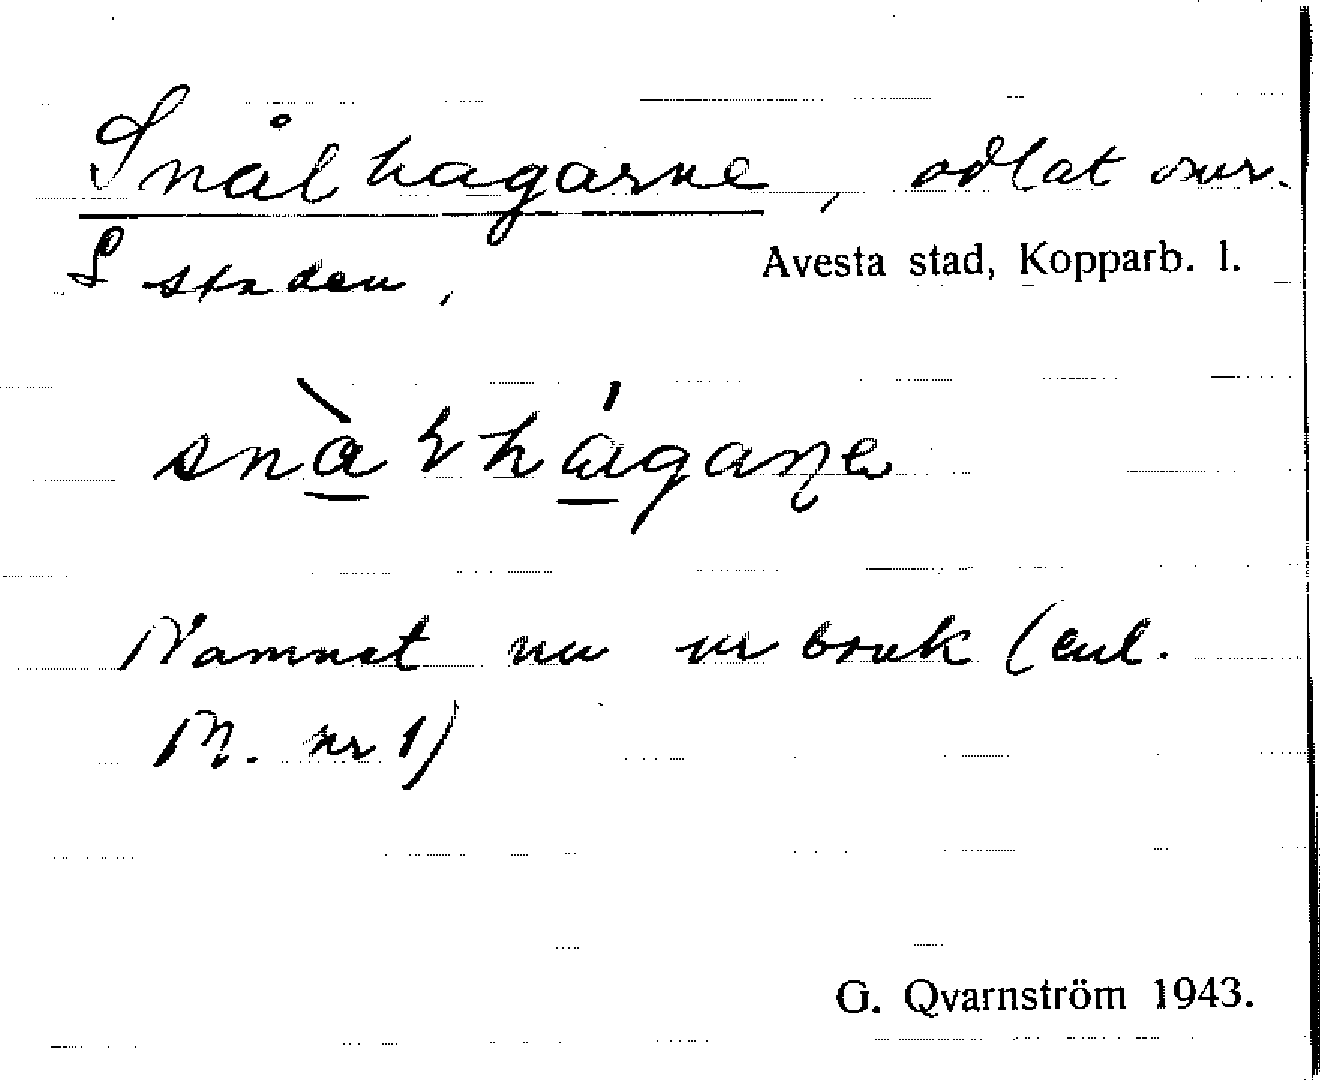 Snålhagarne, odlat omr.
Avesta stad, Kopparb. l.
S staden,
snàꞎhágaṇe
Namnet nu ur bruk (enl.
M. nr 1)
G. Qvarnström 1943.